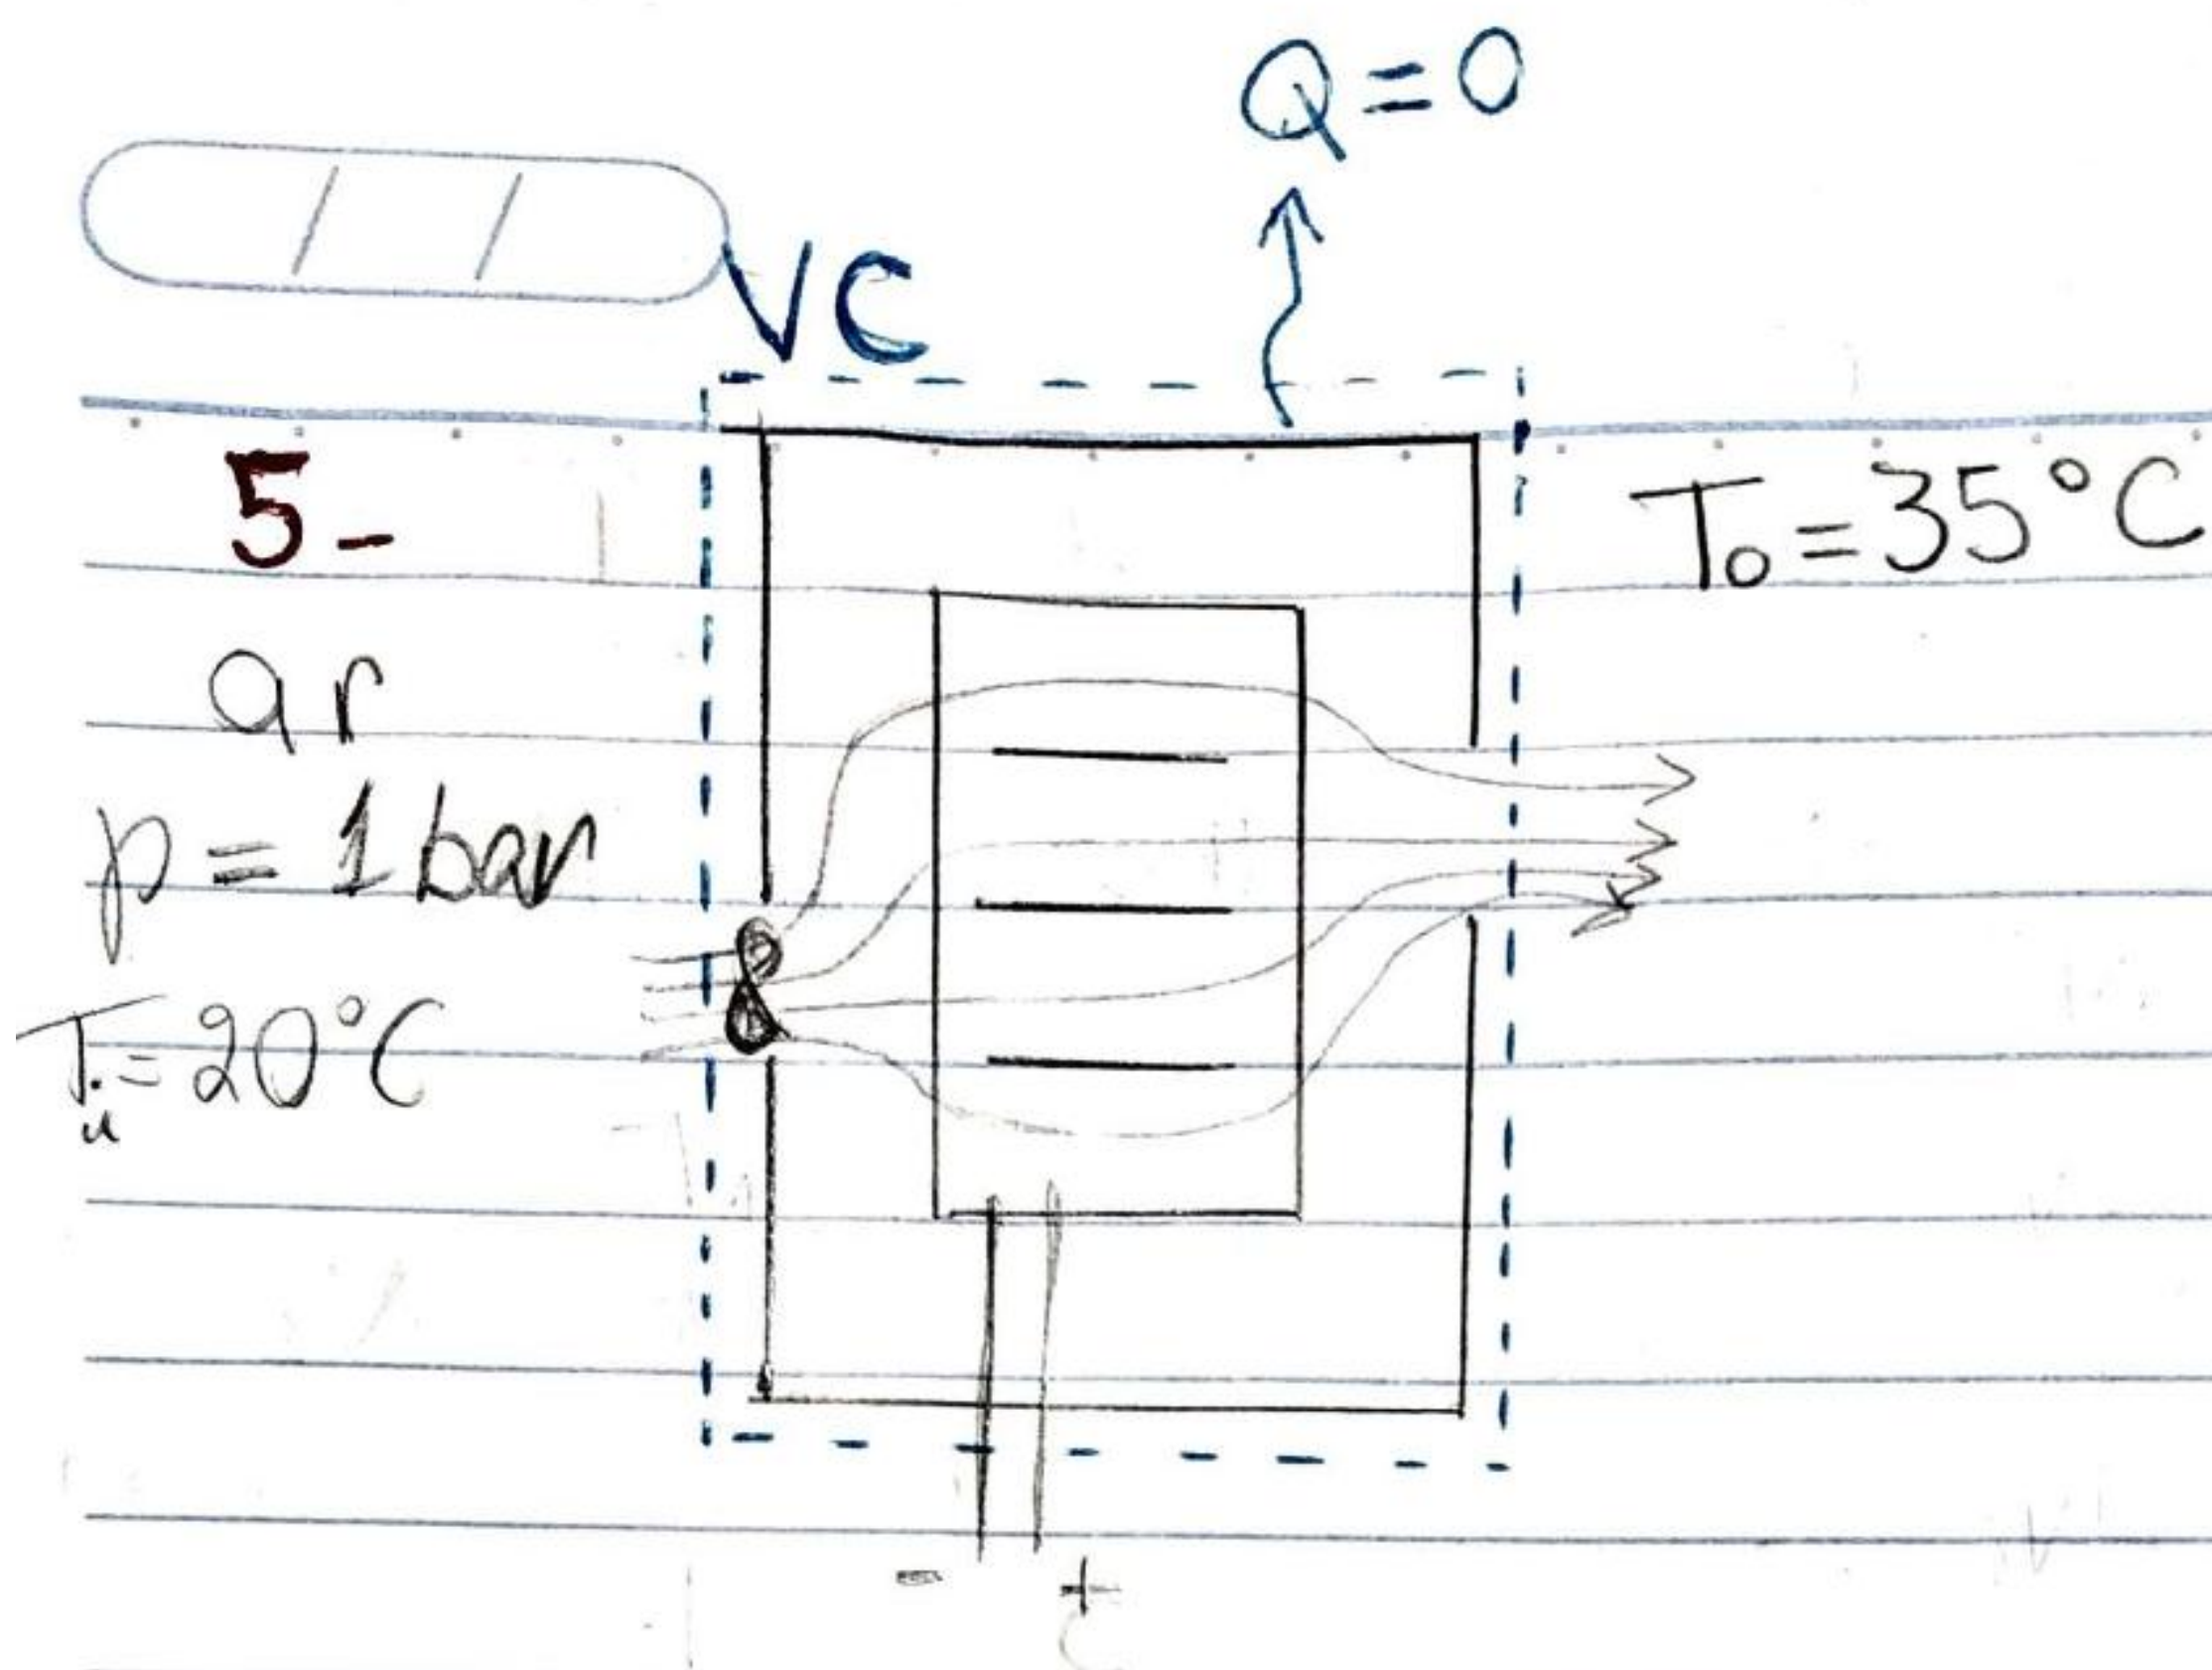 Q = 0
VC
5-
T₀ = 35°C
ar
p = 1 bar
Tᵢ = 20°C
- +